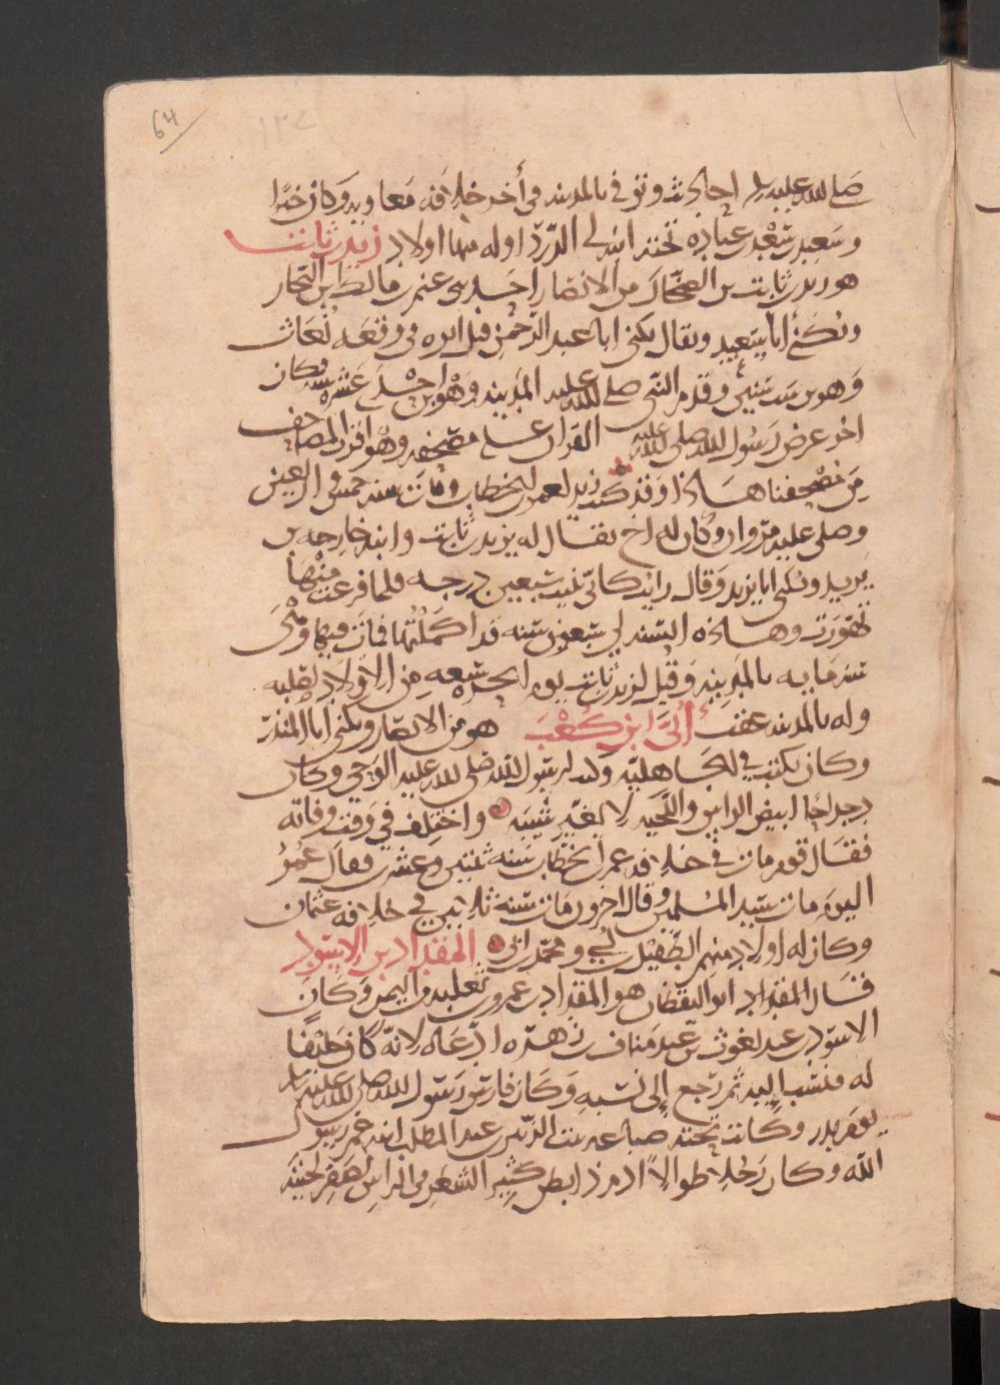 64
صلى الله عليه احاديث وتوفي بالمدينه في أخر خلافة معاويه وكان
وسعيد بن سعد بن عباده تحته ابنه لابي الدرداء وله منها اولاد زيد بن ثابت
هو زيد بن ثابت بن الضحاك من الانصار احد بني غنم بن مالك بن النجار
ويكنى ابا سعيد ويقال يكنى ابا عبد الرحمن قتل ابوه في وقعه بعاث
وهو بن ست سنين وقدم النبي صلى الله عليه المدينه وهو بن احدى عشره سنه وكان
اخر عرض رسول الله صلى الله عليه القران على مصحفه وهو اقرب المصاحف
من مصحفنا هذا وقد كتب زيد لعمر بن الخطاب ومات سنه خمس واربعين
وصلى عليه مروان وكان له اخ يقال له يزيد بن ثابت وابنه خارجه بن
يزيد ويكنى ابا يزيد وقال رايت كاني بنيت سبعين درجه فلما فرغت منها
تهورت وهذه السنه لي سبعون سنه قد اكملتها فمات فيها وهي
سنه مايه بالمدينه وقيل لزيد بن ثابت يوم الحره سبعه من الاولاد لصلبه
وله بالمدينه عقب أبي ابن كعب هو من الانصار ويكنى ابا المنذر
وكان يكتب في الجاهليه وكتب لرسول الله صلى الله عليه الوحي وكان
دحداحا ابيض الراس واللحيه لا يغير شيبه واختلف في وقت وفاته
فقال قوم مات في خلافه عمر بن الخطاب سنه ثنتين وعشرين فقال عمر
اليوم مات سيد المسلمين وقال اخرون مات سنه ثلاثين في خلافه عثمان
وكان له اولاد منهم الطفيل بن ابي ومحمد بن ابي المقداد بن الاسود
قال المقداد ابو اليقظان هو المقداد بن عمرو بن ثعلبه من اليمن وكان
الاسود بن عبد يغوث بن عبد مناف بن زهره ادعاه لانه كان حليفا
له فنسب اليه ثم رجع إلى نسبه وكان فارس رسول الله صلى الله عليه
يوم بدر وكانت تحته ضباعه بنت الزبير بن عبد المطلب ابنه عم رسول
الله وكان رجلا طوالا ادم ذا بطن كثير الشعر في الراس يصفر لحيته